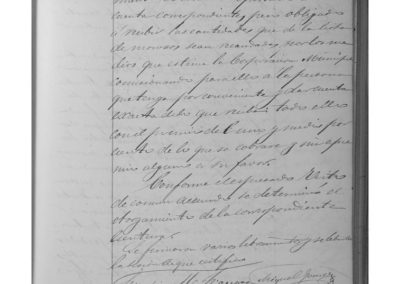 cuenta correspondiente, pero obligado
á recibir las cantidades que de la lista
de morosos sean recaudadas por los me
dios que estime la Corporacion Municipal
comisionando para ello á la persona
que tenga por conveniente y dar cuenta
exacta de los que reciba; todo ello
con el premio de uno y medio por
ciento de lo que se cobrare y sin
alguno a su favor.
Conforme el espresado
de comun acuerdo se determinó el
otorgamiento de la correspondiente
escritura.
Se firmaron varios libramientos y se
la sesion de que certifico
Miguel